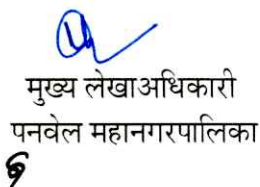 मुख्य लेखाअधिकारी
पनवेल महानगरपालिका